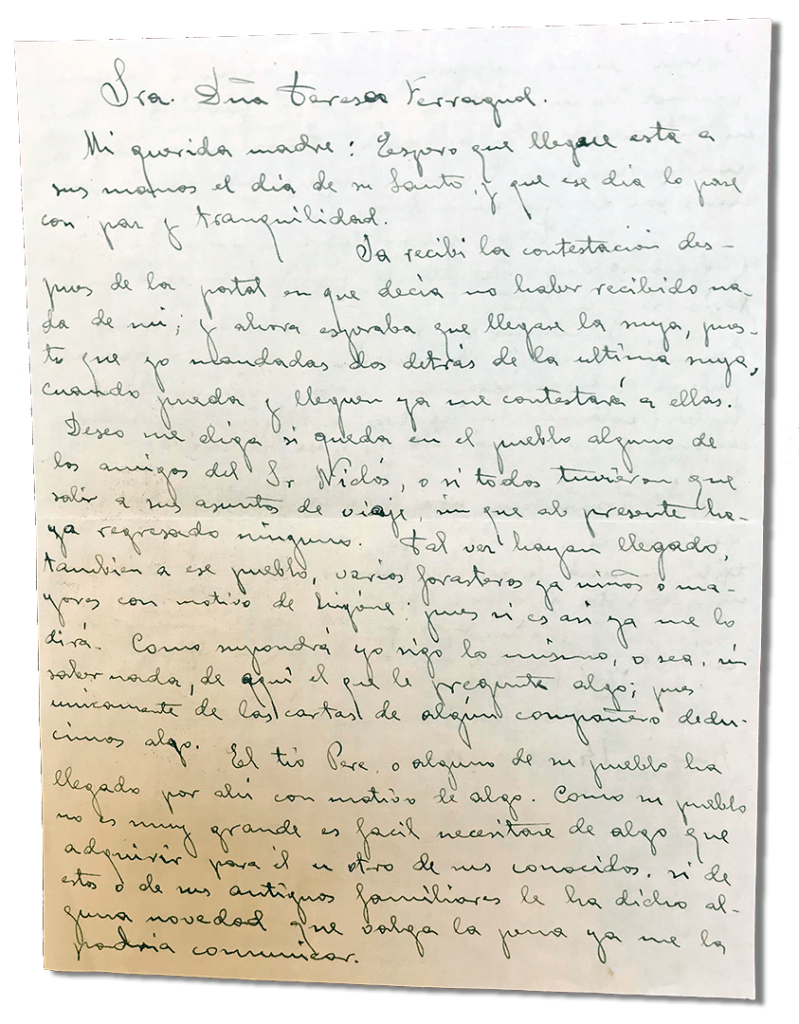 Sra. Dña Teresa Ferragud.
Mi querida madre: Espero que llegue esta a
sus manos el día de su Santo, y que ese dia lo pase
con paz y tranquilidad.
Ya recibi la contestación des-
pues de la postal en que decia no haber recibido na-
da de mi; y ahora esperaba que llegase la suya, pues-
to que yo mandadas dos detrás de la ultima suya,
cuando pueda y lleguen ya me contestará a ellas.
Deseo me diga si queda en el pueblo alguno de
los amigos del Sr. , o si todos tuvieron que
salir a sus asuntos de viaje, sin que al presente ha-
ya regresado ninguno. Tal vez hayan llegado,
tambien a ese pueblo, varios forasteros ya niños o ma-
yores con motivo de : pues si es asi ya me lo
dirá. Como supondrá yo sigo lo mismo, o sea, sin
saber nada, de aquí el que le pregunte algo; pues
unicamente de las cartas de algún compañero dedu-
cimos algo. El tío Pere, o alguno de su pueblo ha
llegado por ahi con motivo de algo. Como su pueblo
no es muy grande es facil necesitase de algo que
adquirir para él u otro de sus conocidos. si de
estos o de sus antiguos familiares le ha dicho al-
guna novedad que valga la pena ya me la
podria comunicar.